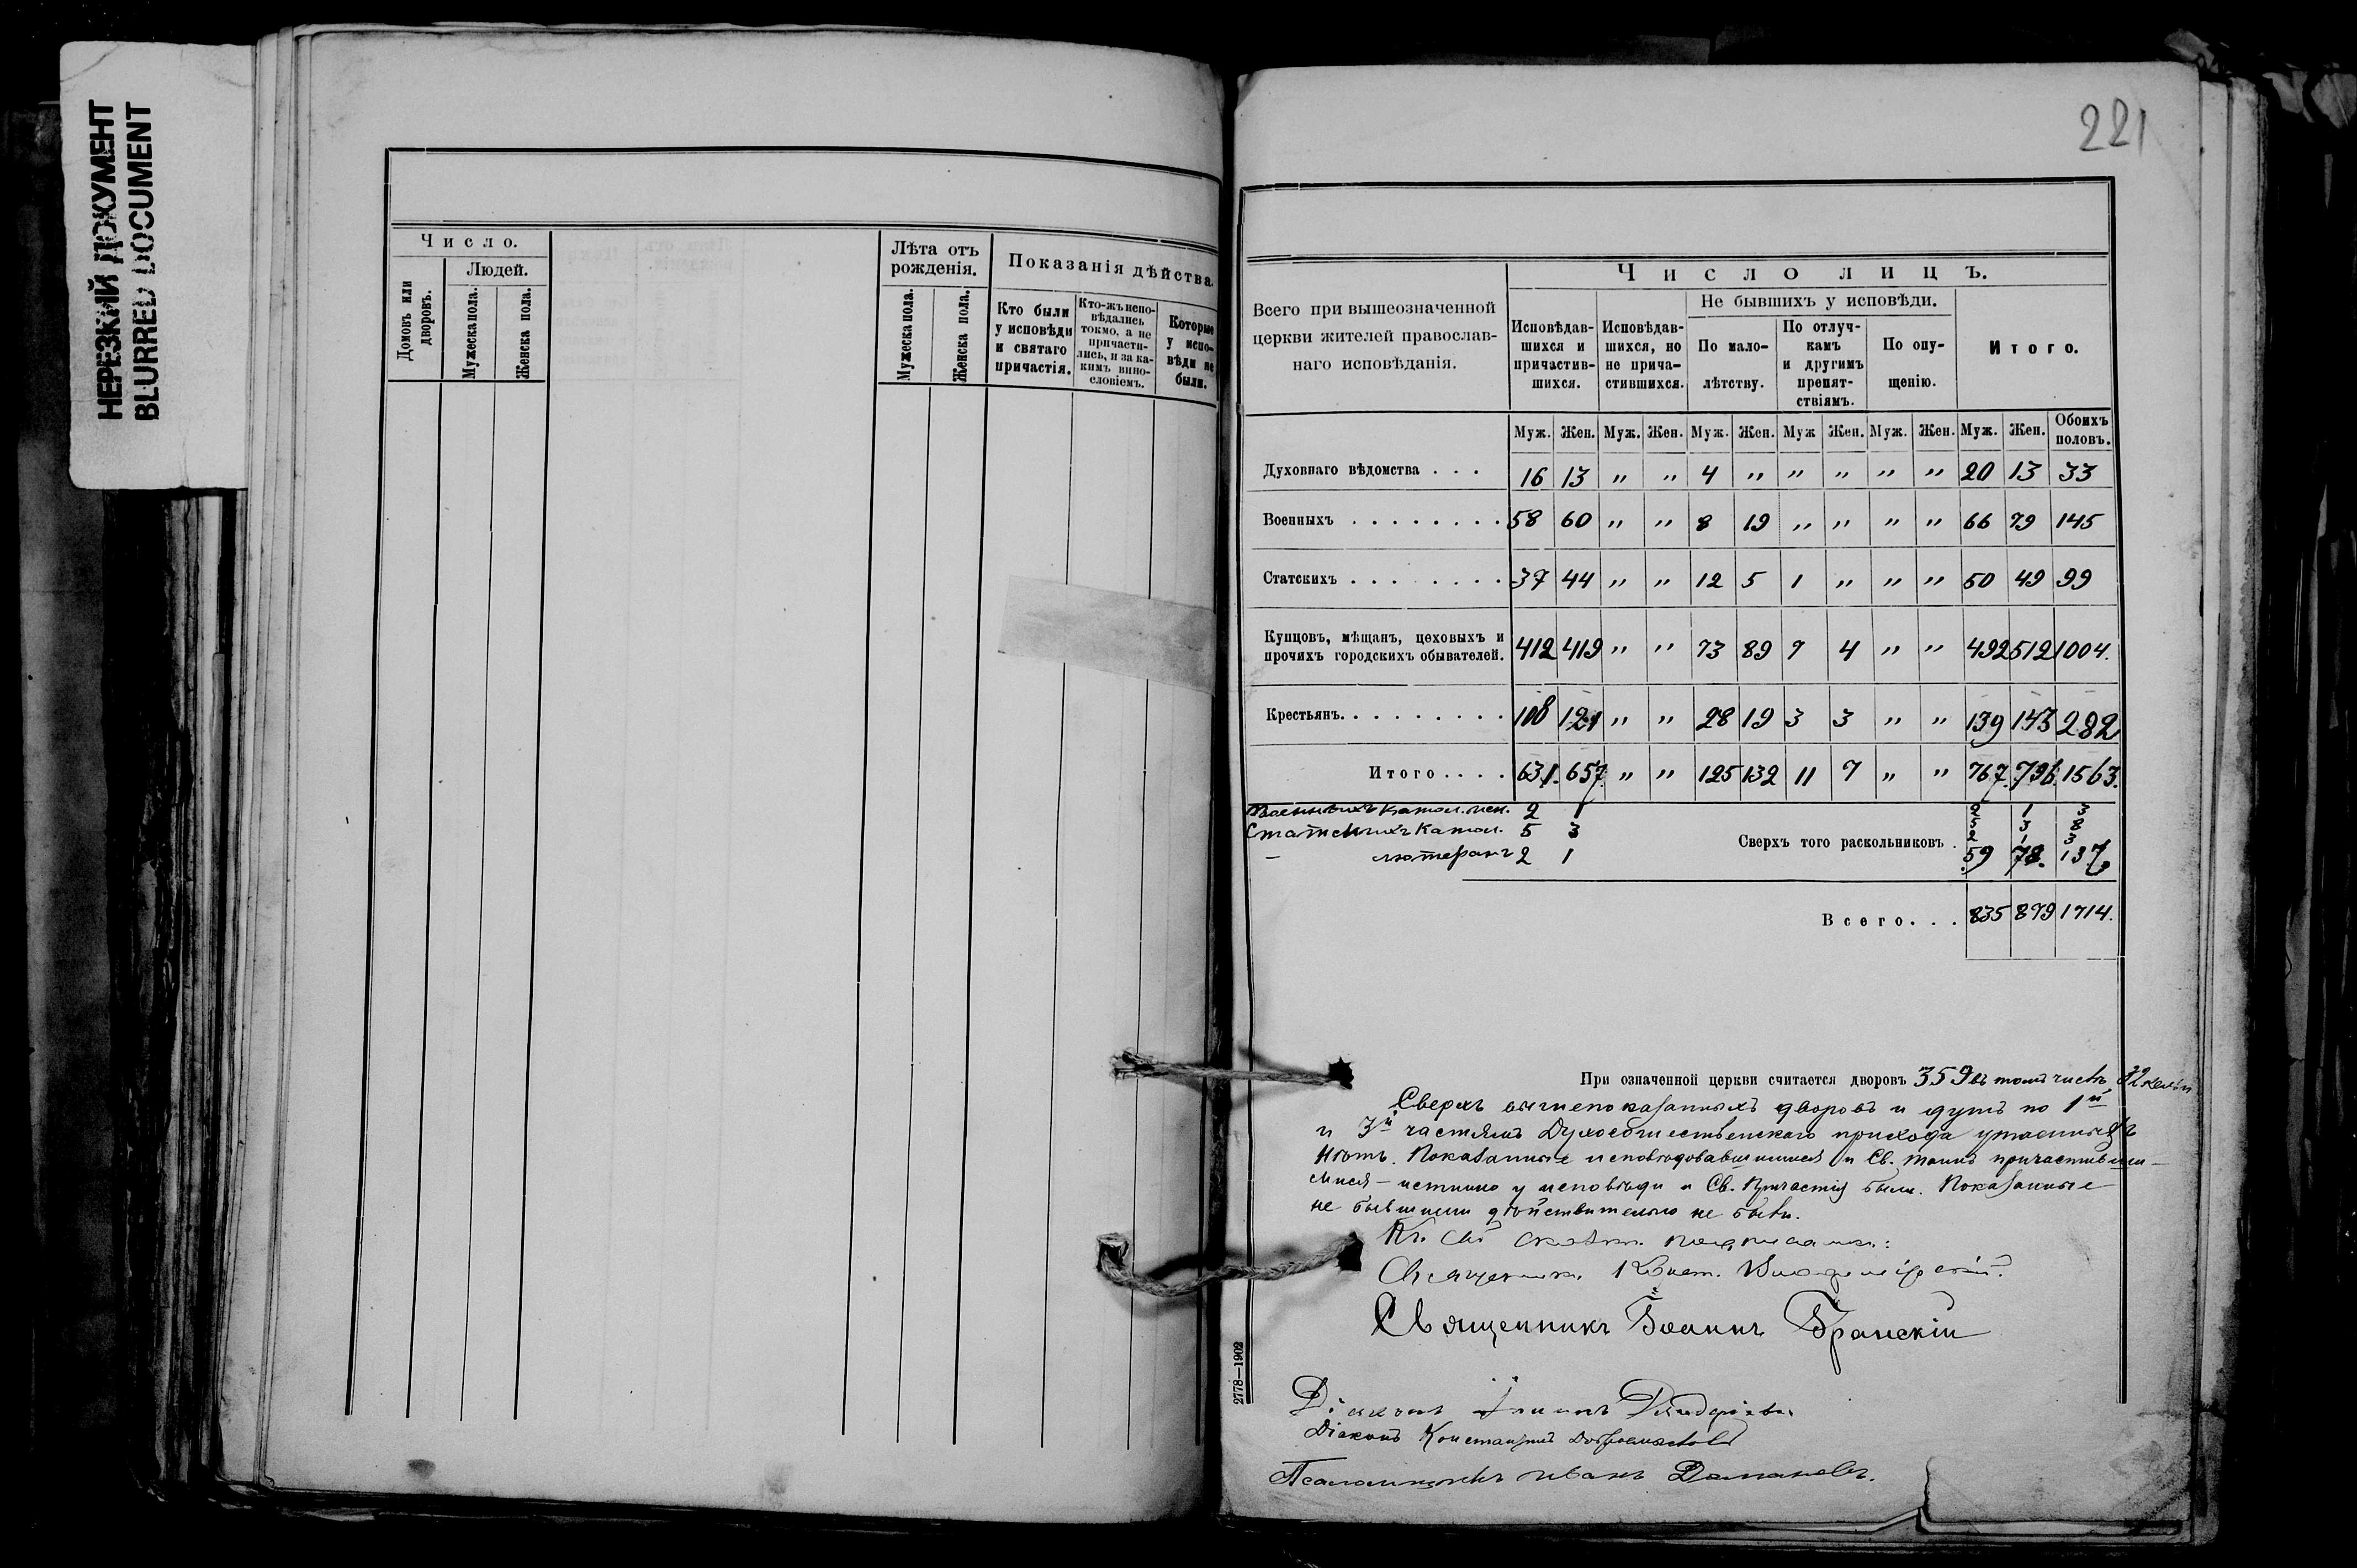 НЕРЕЗКИЙ ДОКУМЕНТ
BLURRED DOCUMENT
Число.
Людей.
Домовъ или дворовъ.
Мужеска пола.
Женска пола.
Лѣта отъ рожденія.
Мужеска пола.
Женска пола.
Показанія дѣйства.
Кто были у исповѣди и святаго причастія.
Кто-жъ исповѣдались токмо, а не причастились, и за какимъ винословіемъ.
Которые у исповѣди не были.
221
Всего при вышеозначенной
церкви жителей православ-
наго исповѣданія.
Число лицъ.
Исповѣдав-
шихся и
причастив-
шихся.
Исповѣдав-
шихся, но
не прича-
стившихся.
Не бывшихъ у исповѣди.
По мало-
лѣтству.
По отлуч-
камъ
и другимъ
препят-
ствіямъ.
По опу-
щенію.
Итого.
Муж. Жен. Муж. Жен. Муж. Жен. Муж Жен. Муж. Жен. Муж. Жен. Обоихъ половъ.
Духовнаго вѣдомства . . . 16 13 " " 4 " " " " " 20 13 33
Военныхъ . . . . . . . . 58 60 " " 8 19 " " " " 66 79 145
Статскихъ . . . . . . . . 37 44 " " 12 5 1 " " " 50 49 99
Купцовъ, мѣщанъ, цеховыхъ и
прочихъ городскихъ обывателей. 412 419 " " 73 89 7 4 " " 492 512 1004.
Крестьянъ. . . . . . . . . 108 121 " " 28 19 3 3 " " 139 143 282
Итого . . . . 631. 657. " " 125 132 11 7 " " 767. 796. 1563.
Военныхъ катол. 2 1 2 1 3
Статскихъ катол. 5 3 5 3 8
— лютеранъ 2 1 2 1 3
Сверхъ того раскольниковъ . 59 78. 137.
Всего. . . 835 879 1714.
При означенной церкви считается дворовъ 359 въ томъ числѣ 32 кельи
Сверхъ вышепоказанныхъ дворовъ и душъ по 1й
и 3й частямъ Духосошественскаго прихода утаенныхъ
нѣтъ. Показанные исповѣдовавшимися и Св. Таинъ причастивши-
мися — истинно у исповѣди и Св. Причастія были. Показанные
не бывшими дѣйствительно не были.
Къ сей подписались:
Священникъ
Священникъ Іоаннъ
Діаконъ
Діаконъ Константинъ
Псаломщикъ Иванъ
2778—1902